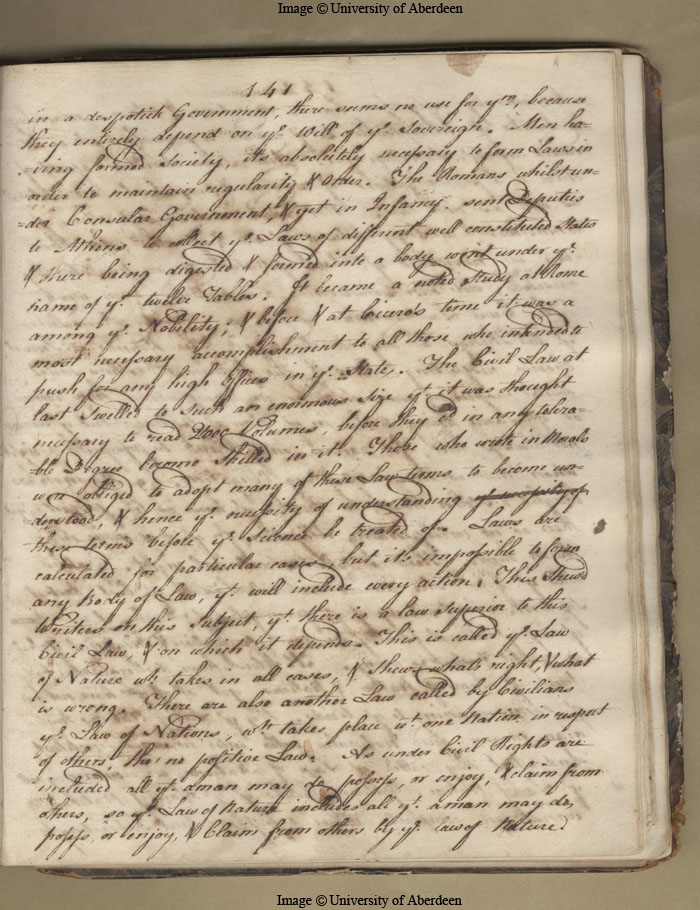 Image © University of Aberdeen
141
in a despotick Government, there seems no use for ym, because
they entirely depend on ye. Will of ye. Sovereign. Men ha=
=ving formed Society, it's absolutely necessary to form Laws in
order to maintain regularity & Order. The Romans whilst un=
=der Consular Government, & yet in Infancy sent Deputies
to Athens to collect ye. Laws of different well constituted States
& there being digested & formed into a body went under ye.
name of ye. twelve Tables. It became a noted Study at Rome
among ye. Nobility; & before & at Cicero's time it was a
most necessary accomplishment to all those who intended to
push for any high Offices in ye. State. The Civil Law at
last Swelled to such an enormous Size yt. it was thought
necessary to read 2000 Volumes, before they cd in any tolera=
=ble Degree become Skilled in it. These who wrote in Morals
were obliged to adopt many of these Law terms to become un=
derstood, & hence ye. necessity of understanding ye. necessity of
these terms before ye. Science be treated of. Laws are
calculated for particular cases, but it's impossible to form
any Body of Law, yt. will include every action. This Shew'd
Writers on this Subject, yt. there is a law Superior to this
Civil Law, & on which it depends. This is called ye. Law
of Nature wh. takes in all cases, & Shews what's right, & what
is wrong. There are also another Law called by Civilians
ye. Law of Nations, wh. takes place wt. one Nation in respect
of others, tho' no positive Law. As under Civil Rights are
included all yt. a man may do, possess or enjoy, & claim from
others, so ye. Law of Nature includes all yt. a man may do,
possess, or enjoy, & Claim from others by ye. law of Nature.
Image © University of Aberdeen